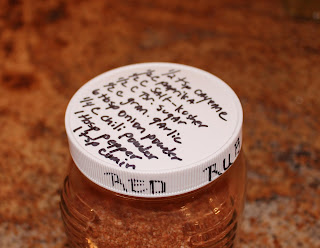 1/2 tsp cayenne
paprika
C salt-kosher
C TBi. sugar
C gran. garlic
6 tbsp onion powder
1/4 C chili powder
1 tbsp pepper
1 tsp cumin
RED RUB